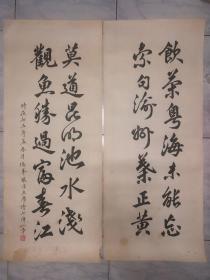 飲茶粤海未能忘
索句渝州葉正黄
莫道昆明池水淺
觀魚勝過富春江